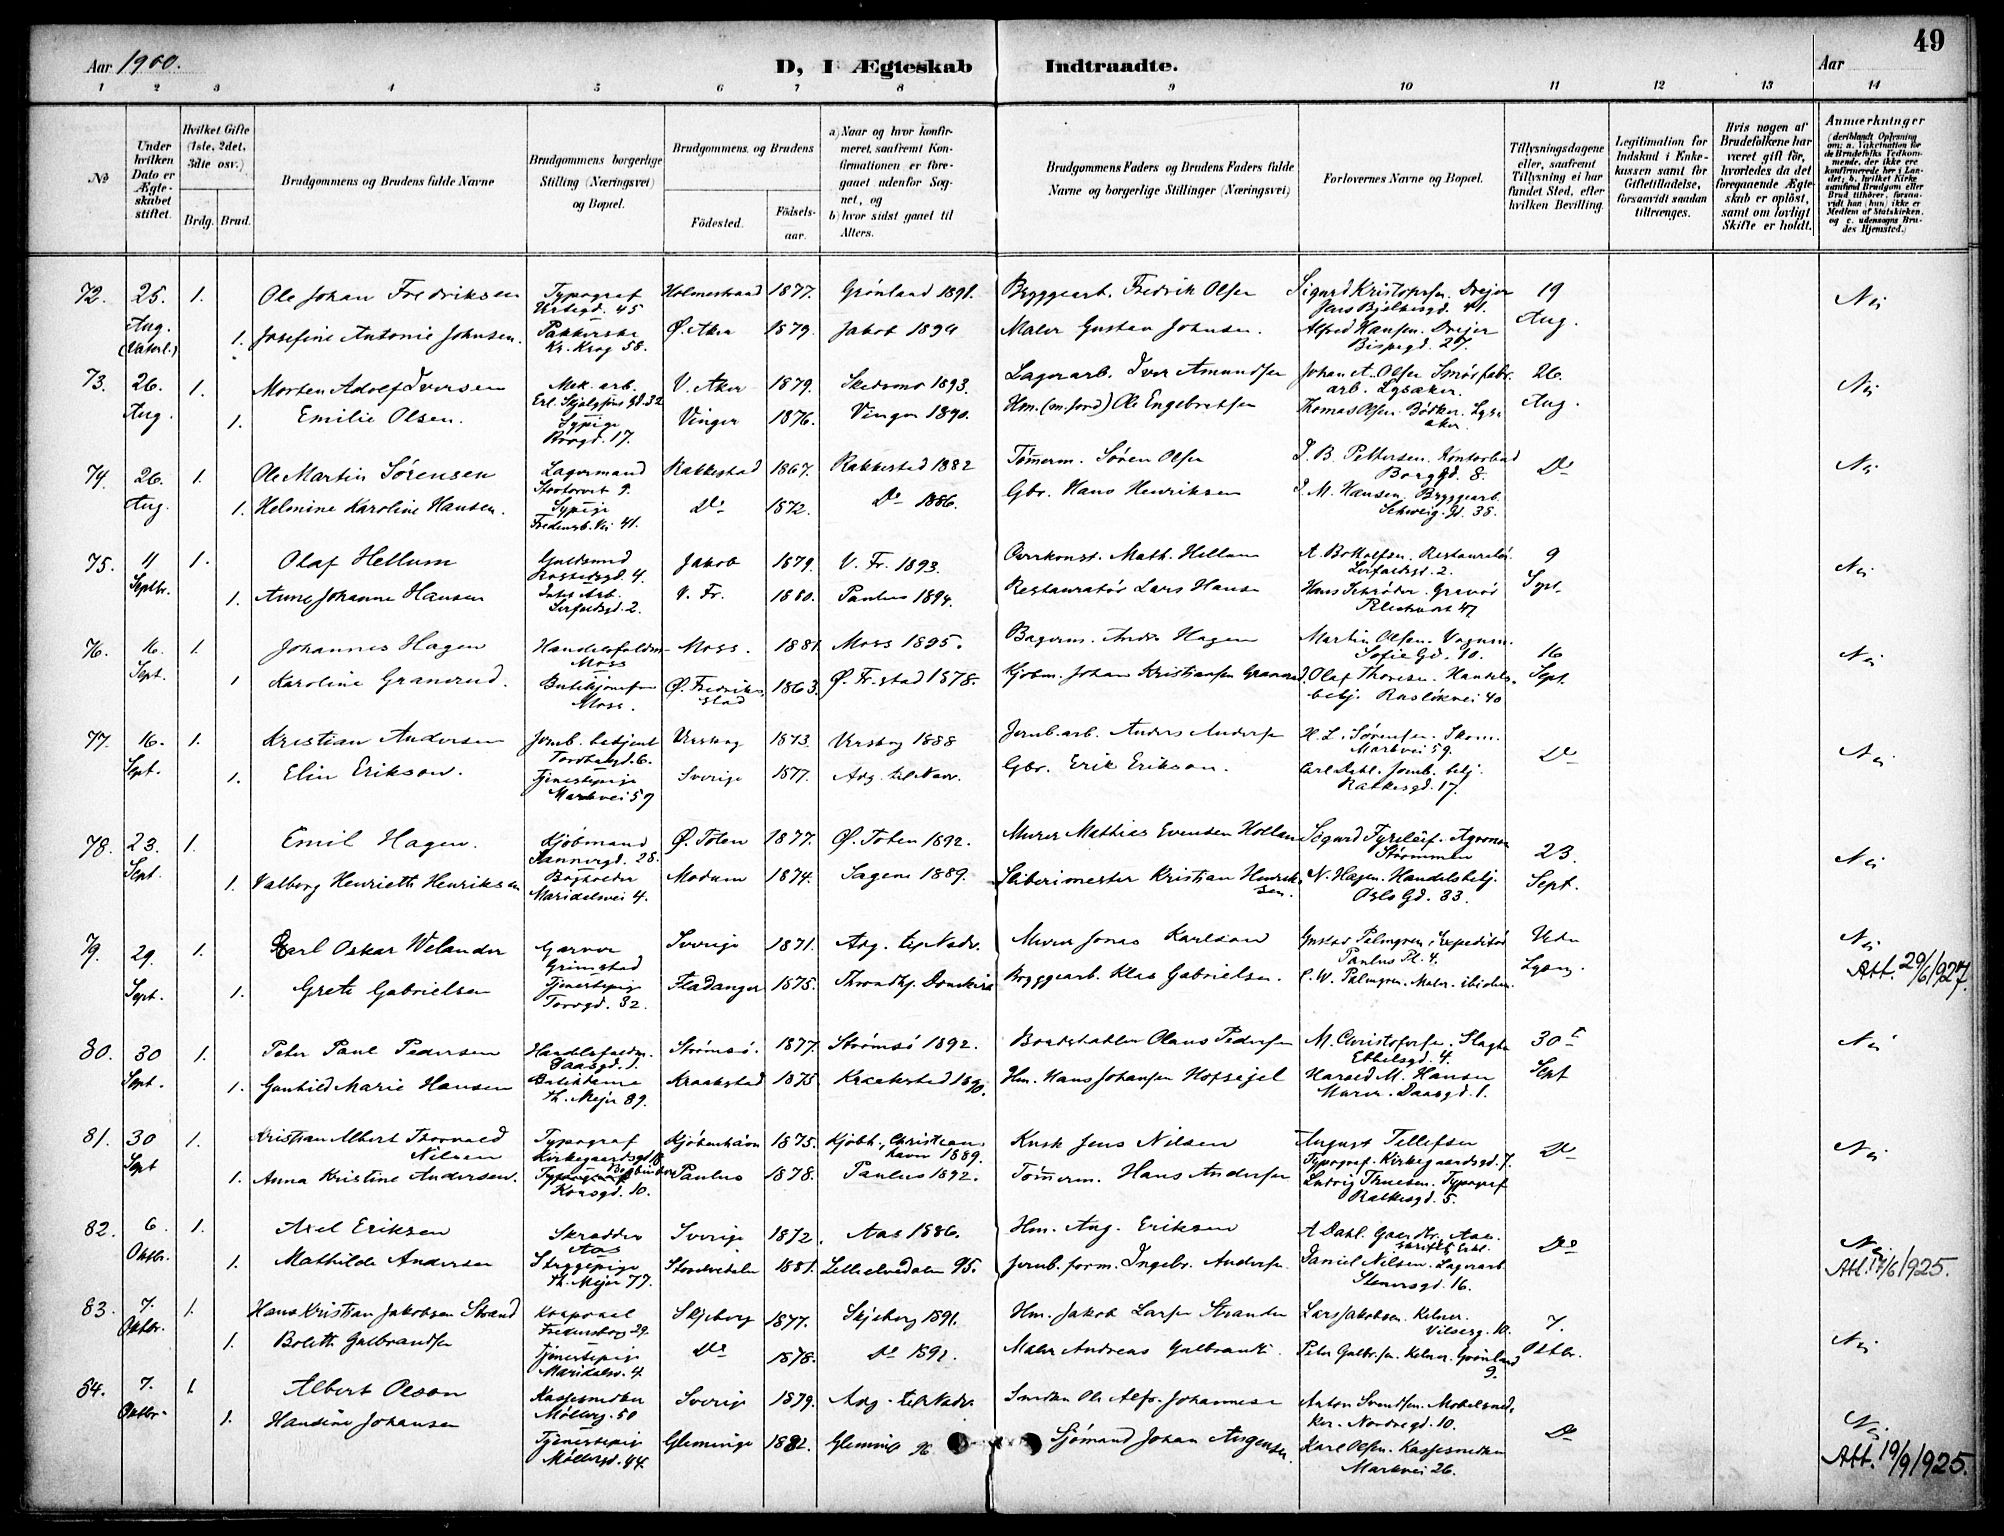 49
Aar 1900.
D, I Ægteskab Indtraadte.
Aar
1 2 3 4 5 6 7 8 9 10 11 12 13 14
No
Under hvilken Dato er Ægteskabet stiftet.
Hvilket Gifte (1ste, 2det, 3die osv.)
Brdg. Brud.
Brudgommens og Brudens fulde Navne
Brudgommens borgerlige Stilling (Næringsvei) og Bopæl.
Brudgommens og Brudens
Fødested.
Fødselsaar.
a) Naar og hvor konfirmeret, saafremt Konfirmationen er foregaaet udenfor Sognet, og
b) hvor sidst gaaet til Alters.
Brudgommens Faders og Brudens Faders fulde Navne og borgerlige Stillinger (Næringsvei)
Forlovernes Navne og Bopæl.
Tillysningsdagene eller, saafremt Tillysning ei har fundet Sted, efter hvilken Bevilling.
Legitimation for Indskud i Enkekassen samt for Giftetilladelse, forsaavidt saadan tiltrænges.
Hvis nogen af Brudefolkene har været gift før, hvorledes da det foregaaende Ægteskab er opløst, samt om lovligt Skifte er holdt.
Anmerkninger (deriblandt Oplysning om: a. Vakcination for de Brudefolks Vedkommende, der ikke ere konfirmerede her i Landet; b. hvilket Kirkesamfund Brudgom eller Brud tilhører, forsaavidt han (hun) ikke er Medlem af Statskirken, og c. udensogns Brudes Hjemsted.)
72. 25. 1. Ole Johan Fredriksen Typograf Holmestrand 1877. Grønland 1891. Bryggearb. Fredrik Olsen Sigurd Kristofersen. Drejer 19 Nei
Urtegd. 45 Jens Bjelkesgd. 41.
Aug. 1. Josefine Antonie Johnsen. Pakkerske Ø. Aker 1879. Jakob 1894 Maler Gustav Johnsen. Alfred Hansen. Drejer Aug.
(Vaterl.) Kr. Krog 58. Bispegd. 27.
73. 26. 1. Morten Adolf Iversen Mek. arb. V. Aker 1879. Skedsmo 1893. Lagerarb. Iver Amundsen Johan A. Olsen Smørfabr. 26. Nei
Erl. Skjalgsøns Gd. 32 arb. Lysaker.
Aug. 1. Emilie Olsen. Sypige Vinger 1876. Vinger 1890. Hm. (m. jord) Ole Engebretsen Thomas Olsen. Bødker. Lysaker. Aug.
Brogd. 17.
74. 26. 1. Ole Martin Sørensen Lagermand Rakkestad 1867. Rakkestad 1882 Tømmerm. Søren Olsen J. B. Pettersen. Kontorbud Do Nei
Stortorvet 9. Borggd. 8.
Aug. 1. Helmine Karoline Hansen. Sypige Do 1872. Do 1886. Gbr. Hans Henriksen J. M. Hansen. Bryggearb.
Fredensb. Vei 41. Schweig. gd. 38.
75. 11 1. Olaf Hellum Guldsmed Jakob 1879. V. Fr. 1893. Overkonst. Math. Hellum A. Bottolfsen. Restauratør 9 Nei
Septbr. 1. Anne Johanne Hansen V. Fr. 1880. Paulus 1894. Restauratør Lars Hansen Hans Schrøder. Gravør Sept.
76. 16. 1. Johannes Hagen Handelsfuldm. Moss. 1881. Moss 1895. Bagerm. Anders Hagen Martin Olsen. Vognm. 16 Nei
Moss Sofie Gd. 10.
Sept. 1 Karoline Granerud. Butikjomfru Ø. Fredrikstad 1863. Ø. Fr.stad 1878. Kjøbm. Johan Kristiansen Granerud. Olaf Thoresen. Handelsbetj. Sept.
Moss.
77. 16. 1. Kristian Andersen Jernb. betjent 1873. 1888 Jernb. arb. Anders Andersen H. L. Sørensen. Skom. Do Nei
Tordensgd. 6. Markvei 59.
Sept. 1. Elin Erikson. Tjenestepige Sverige 1877. Adg. til Nadv. Gbr. Erik Erikson. Carl Dahl. Jernb. betj.
Markvei 59 Rathkesgd. 17.
78. 23. 1. Emil Hagen. Kjøbmand Ø. Toten 1877. Ø. Toten 1892. Murer Mathias Evensen Sigurd Agronom 23. Nei
Sannergd. 28. Strømmen
Sept 1. Valborg Henriette Henriksen Bogholder Modum 1874. Sagene 1889. Sliberimester Kristian Henriksen. N. Hagen. Handelsbetj. Sept.
Maridalsvei 4. Oslo Gd. 33.
79. 29. 1. Carl Oskar Welander Garver Sverige 1871. Adg. til Nadv. Murer Jonas Karlsson Gustav Palmgren, Expeditør Uden Nei
Grimstad Paulus Pl. 4. Att. 29/6 1927.
Sept. 1. Grete Gabrielsen Tjenestepige Fladanger 1875. Throndhj. Domkirke Bryggearb. Klas Gabrielsen. C. W. Palmgren. Maler. ibidem. Lysn.
Torvgd. 32.
80. 30 1. Peter Paul Pedersen Handelsfuldm. Strømsø. 1877. Strømsø 1892. Olaus Pedersen M. Christofersen. Slagter 30te Nei
Daasgd. 1. Ebbelsgd. 4.
Sept. 1. Gunhild Marie Hansen Butikdame Kraakstad 1875 Kraakstad 1890. Hm. Hans Johansen Hofsegel Harald M. Hansen Sept
Th. Mejer 89. Murer. Daasgd. 1.
81. 30 1. Kristian Albert Thorvald Typograf Kjøbenhavn 1875. Kjøbh., Christianshavn 1889. Kusk Jens Nilsen August Tellefsen Do Nei
Nilsen Kirkegaardsgd. Typograf. Kirkegaardsgd. 7.
Sept 1. Anna Kristine Andersen. Bogbinder Paulus 1878. Paulus 1892. Tømmerm. Hans Andersen Ludvig Thuesen. Typograf
Korsgd. 10. Rathkesgd. 5.
82. 6. 1. Axel Eriksen Skrædder Sverige 1872. Aas 1886. Hm. Aug. Eriksen A Dahl. Do Nei
Aas
Oktbr. 1. Mathilde Andersen Strygepige 1881. 95. Jernb. form. Ingebr. Andersen Daniel Nilsen. Lagerarb. Att. 17/6 1925.
Th. Mejer 77. Stenersgd. 16.
83. 7. 1. Hans Kristian Jakobsen Strand Korporal Skjeberg 1877. Skjeberg 1891. Hm. Jakob Larsen Stranden Lars Jakobsen. Kelner. 7. Nei
Fredensborg 29. 10.
Oktbr. 1. Bolette Gulbrandsen Tjenestepige Do 1878. Do 1892. Maler Andreas Gulbrands. Peter Gulbr.sen. Kelner. Grønland 9. Oktbr.
Maridalsv. 4
84. 7. 1. Albert Olson Kassesnedker Sverige 1879. Adg. til Nadv. Smeden Ole Alfr. Johannesen Anton Svendsen. Møbelsnedker. Nordregd. 10. Do Nei
Møllerg. 50
Oktbr. 1. Handine Johansen Tjenestepige Glemminge 1882. Glemminge 96. Sjømand Johan Augensen. Karl Olsen. Kassesnedker Att. 19/9 1925.
Møllergd. 44. Markvei 26.